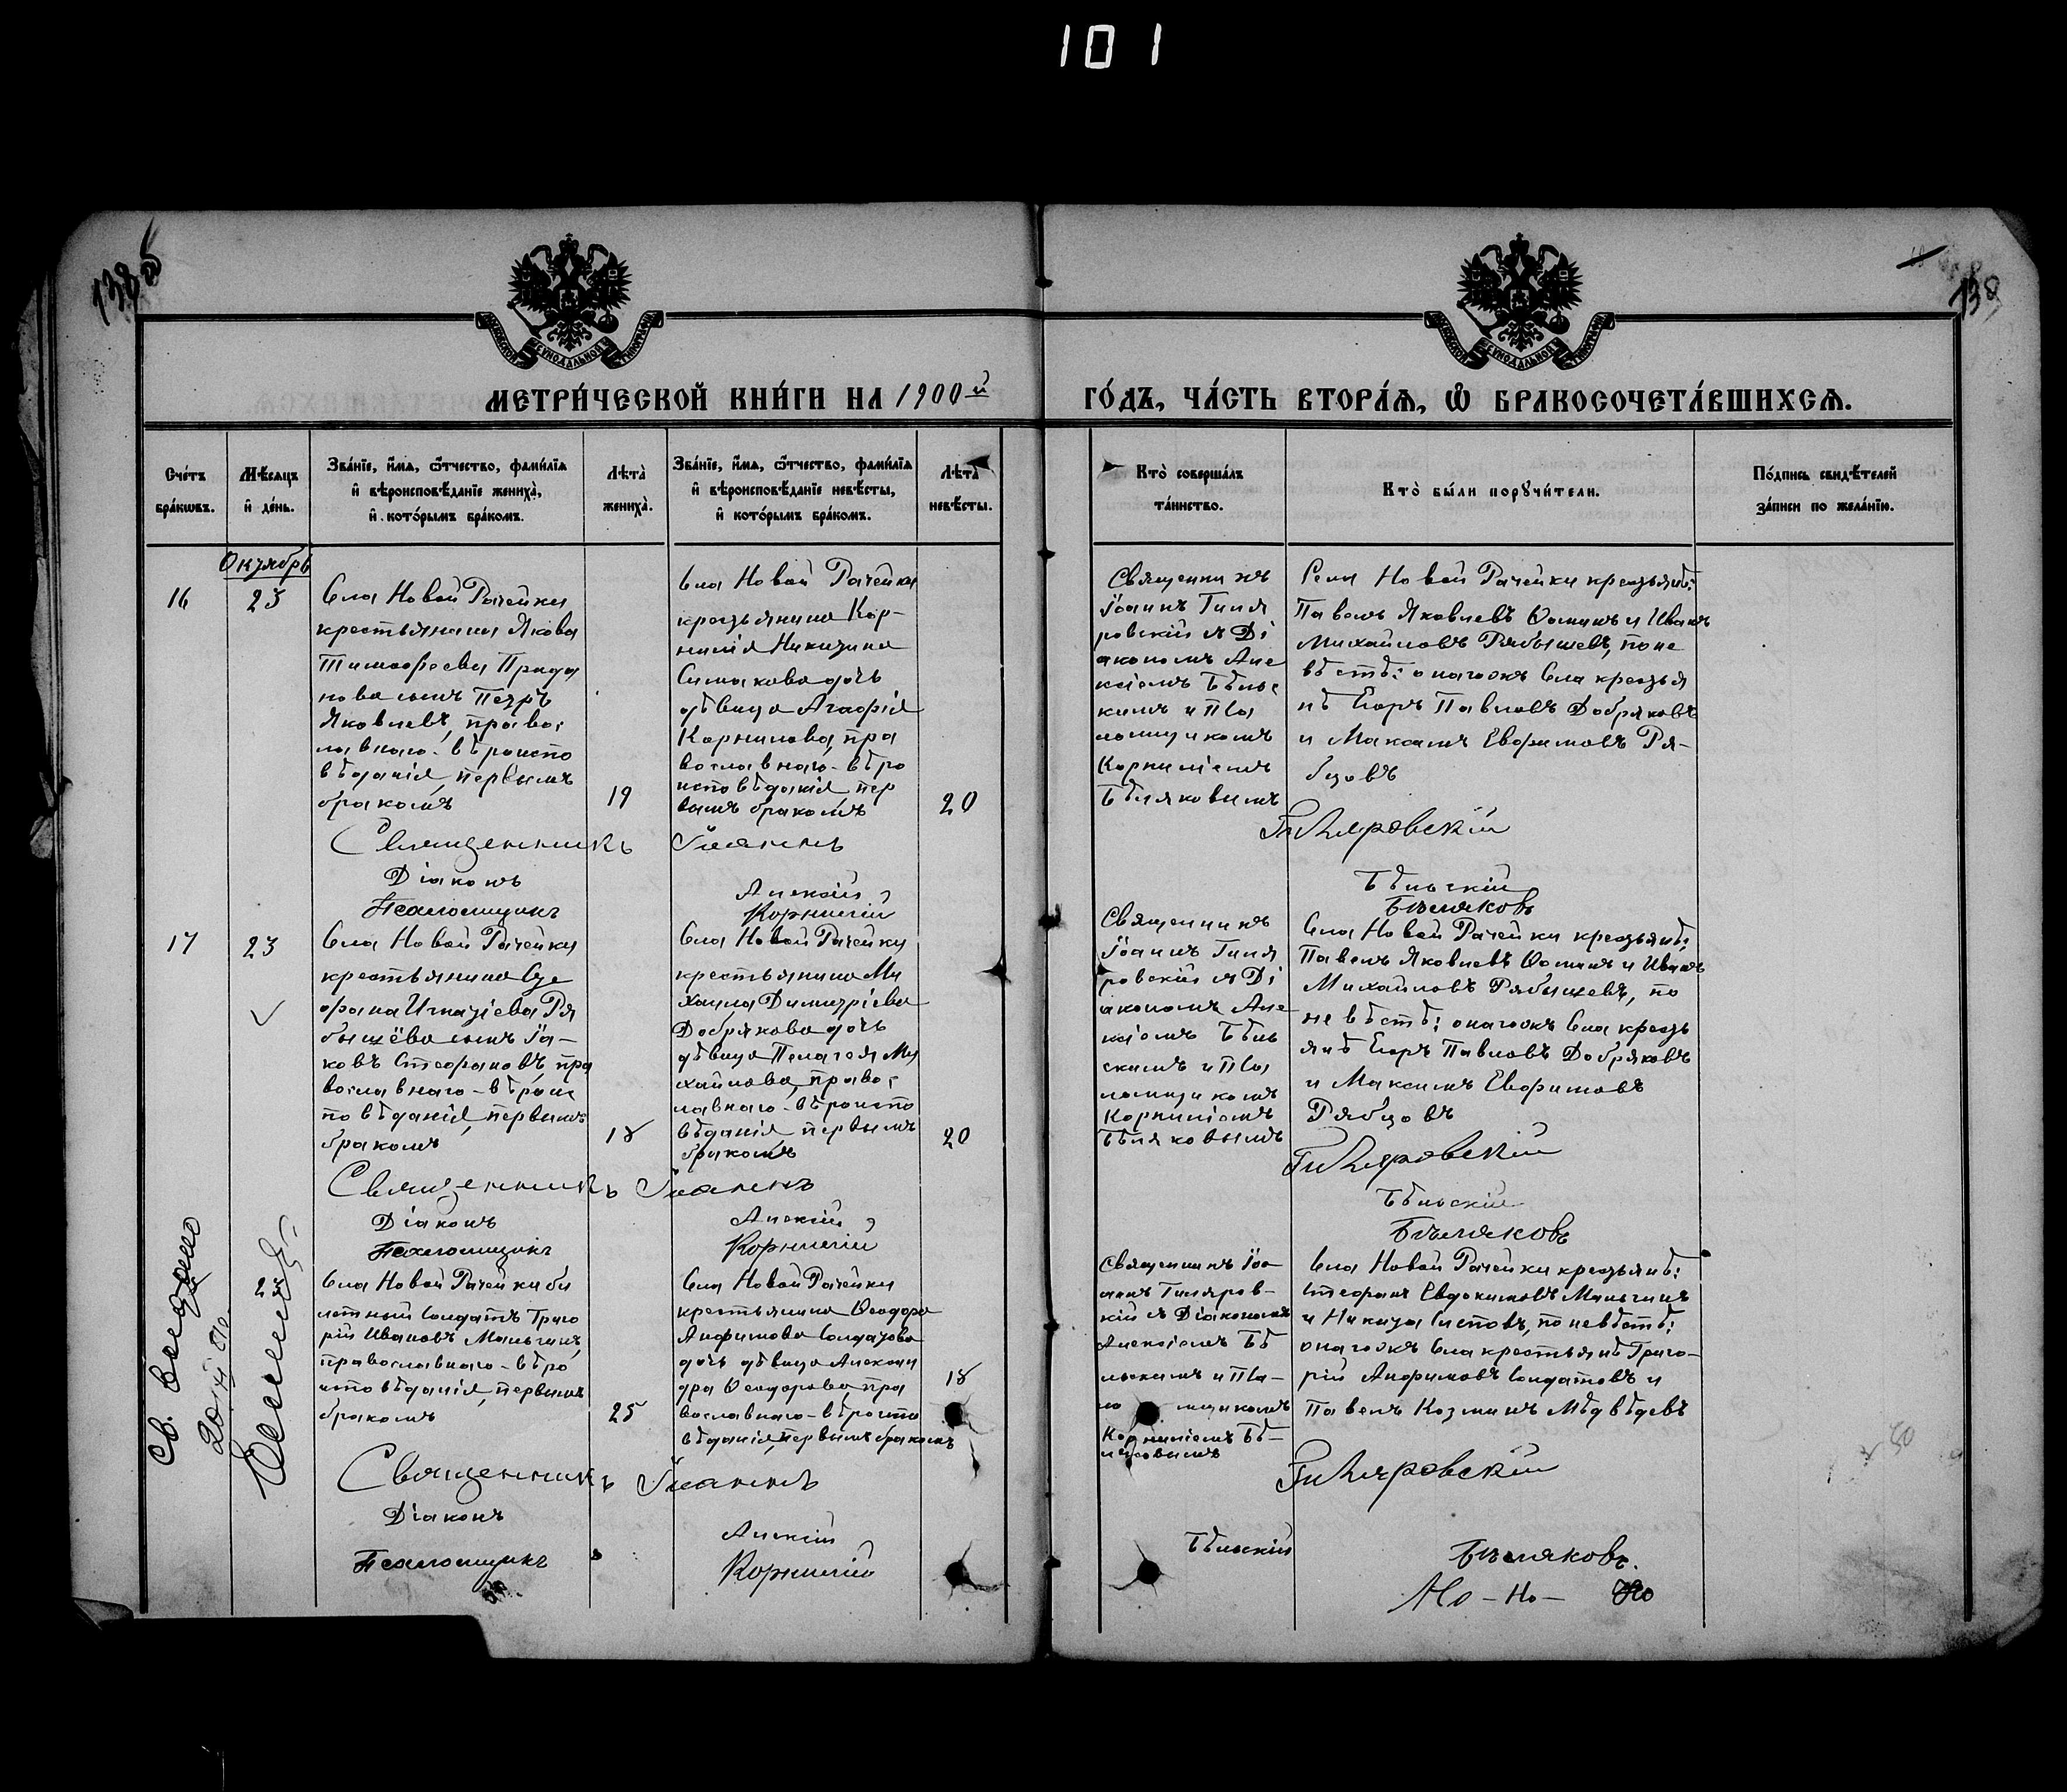 101
138 об
138
МЕТРИ́ЧЕСКОЙ КНИ́ГИ НА 1900й
ГО́ДЪ, ЧА́СТЬ ВТОРА́Ѧ, Ѡ҆ БРАКОСОЧЕТА́ВШИХСѦ.
Сче́тъ
бра́кѡвъ.
Мѣ́сѧцъ
и҆ де́нь.
Зва́нїе, и҆́мѧ, ѻ҆́тчество, фами́лїѧ
и҆ вѣроисповѣ́данїе жениха̀,
и҆ кото́рымъ бра́комъ.
Лѣ́та̀
жениха̀.
Зва́нїе, и҆́мѧ, ѻ҆́тчество, фами́лїѧ
и҆ вѣроисповѣ́данїе невѣ́сты,
и҆ кото́рымъ бра́комъ.
Лѣ́та̀
невѣ́сты.
Кто̀ соверша́лъ
та́инство.
Кто̀ бы́ли порꙋчи́тели.
По́дпись свидѣ́телей
за́писи по жела́нїю.
Октябрь
16
23
Села Новой Рачейки
крестьянина Якова
Тимофеева
нова сынъ Петръ
Яковлевъ, правос
лавнаго-вѣроиспо
вѣданія, первымъ
бракомъ
19
Села Новой Рачейки
крестьянина Кор-
нилія Никитина
Симакова дочь
дѣвица Агафія
Корнилова, пра
вославнаго-вѣро
исповѣданія пер
вымъ бракомъ
20
Священникъ
Іоаннъ Гиля
ровскій съ Ді
акономъ Але
ксіемъ Бѣльс
кимъ и Пса
ломщикомъ
Корниліемъ
Бѣляковымъ
Села Новой Рачейки крестьянѣ:
Павелъ Яковлевъ Ѳоминъ и Иванъ
Михайловъ Рябышевъ, по не
вѣстѣ: онагожъ села крестья
нѣ Егоръ Павловъ Добряковъ
и Максимъ Евфимовъ Ря-
бцовъ
Священникъ Іоаннъ Гиляровскій
Діаконъ Алексій Бѣльскій
Псаломщикъ Корнилій Бѣляковъ
17
23
Села Новой Рачейки
крестьянина Сте
фана Игнатіева Ря
бышёва сынъ Іа-
ковъ Стефановъ, пра
вославнаго-вѣроис
повѣданія, первымъ
бракомъ
18
Села Новой Рачейки
крестьянина Ми
хаила Димитріева
Добрякова дочь
дѣвица Пелагея Ми
хайлова, правос
лавнаго-вѣроиспо
вѣданія первымъ
бракомъ
20
Священникъ
Іоаннъ Гиля
ровскій съ Ді
акономъ Але
ксіемъ Бѣль
скимъ и Пса
ломщикомъ
Корниліемъ
Бѣляковымъ
Села Новой Рачейки крестьянѣ:
Павелъ Яковлевъ Ѳоминъ и Иванъ
Михайловъ Рябышевъ, по
невѣстѣ: онагожъ села кресть
янѣ Егоръ Павловъ Добряковъ
и Максимъ Евфимовъ
Рябцовъ
Священникъ Іоаннъ Гиляровскій
Діаконъ Алексій Бѣльскій
Псаломщикъ Корнилій Бѣляковъ
Св.
23
Села Новой Рачейки би
летный солдатъ Григо
рій Ивановъ Мальгинъ,
православнаго-вѣро
исповѣданія, первымъ
бракомъ
25
Села Новой Рачейки
крестьянина Ѳеодора
Анфимова Солдатова
дочь дѣвица Алексан
дра Ѳеодорова, пра
вославнаго-вѣроиспо
вѣданія, первымъ бракомъ
18
Священникъ Іоа
ннъ Гиляров-
скій съ Діакономъ
Алексіемъ Бѣ
льскимъ и Пса-
ло мщикомъ
Корниліемъ Бѣ-
ляковымъ
Села Новой Рачейки крестьянѣ:
Стефанъ Евдокимовъ Мальгинъ
и Никита Сысоевъ, по невѣстѣ:
онагожъ села крестьянѣ Григо-
рій Анфимовъ Солдатовъ и
Павелъ Козминъ Мѣдвѣдевъ
Священникъ Іоаннъ Гиляровскій
Діаконъ Алексій Бѣльскій
Псаломщикъ Корнилій Бѣляковъ.